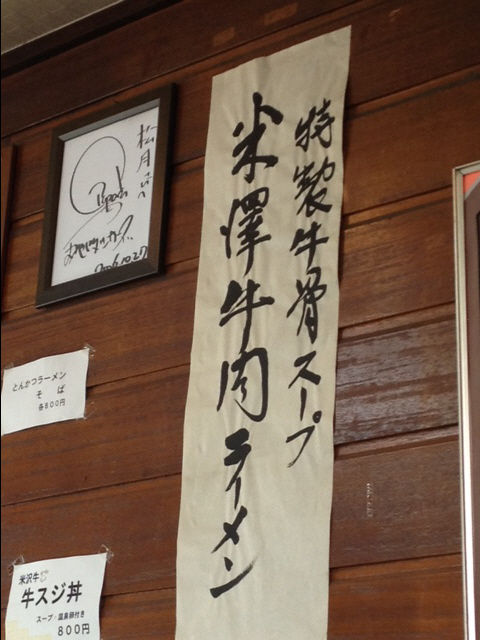 特製牛骨スープ
米澤牛肉ラーメン
松月さんへ
2006.10.27
とんかつラーメン
そば
各800円
米沢牛
牛スジ丼
スープ・温泉卵付き
800円